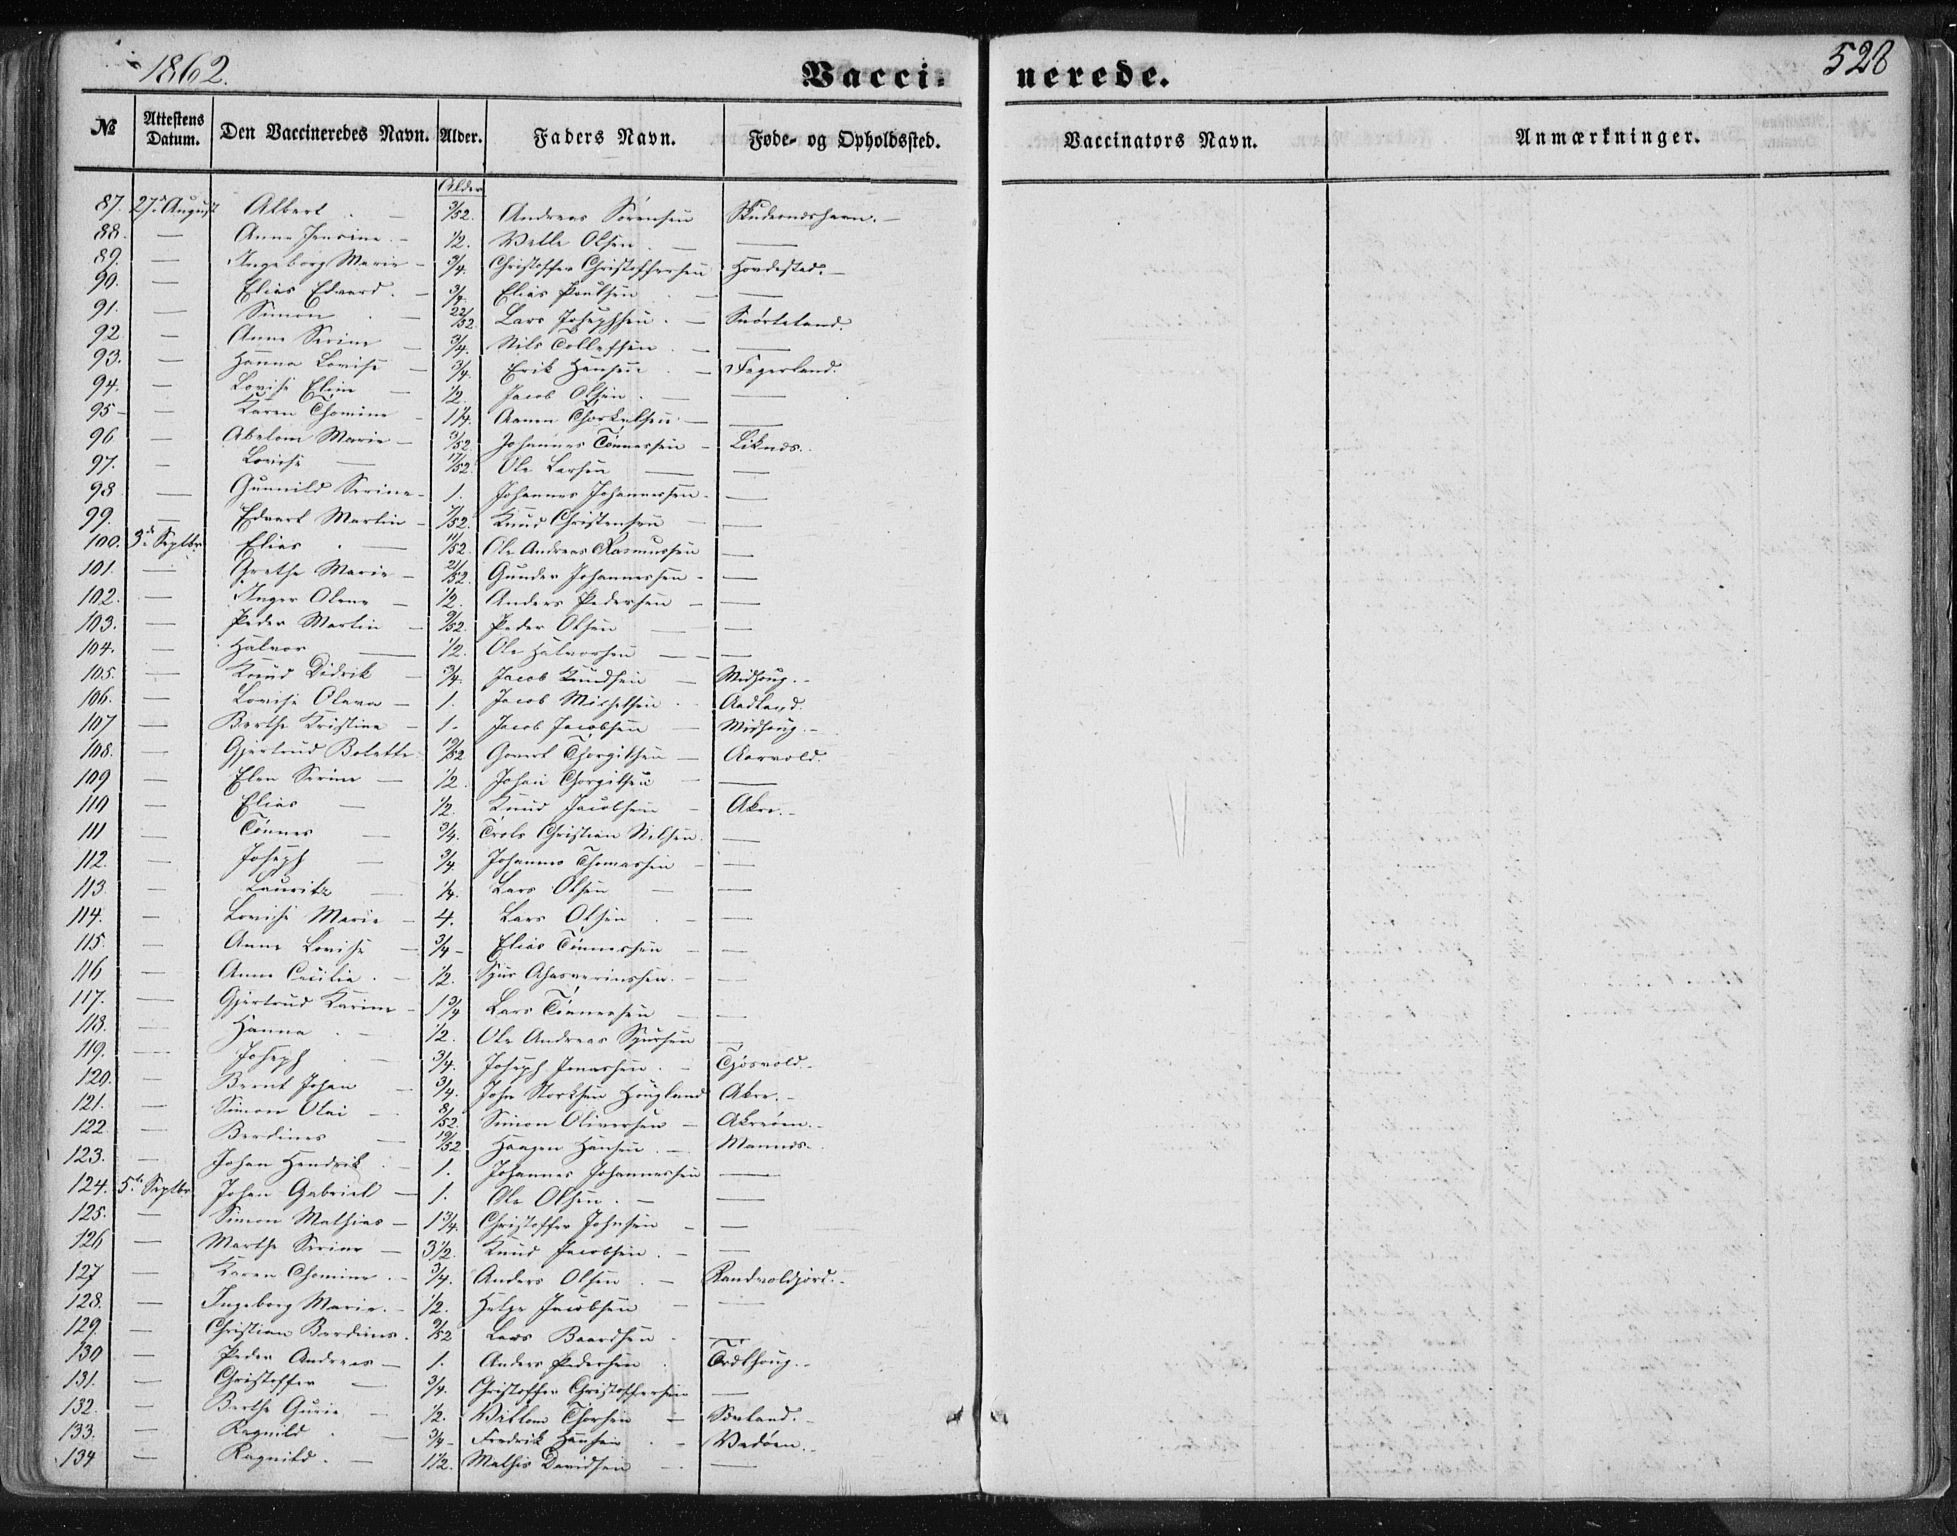 1862.
Vacci-
nerede.
528
№ Attestens Datum. Den Vaccineredes Navn. Alder. Faders Navn. Føde- og Opholdssted. Vaccinators Navn. Anmærkninger.
Alder
87. 27. August Albert - 3/52. Andreas Sørensen Skudesnæshavn. -
88. — Anne Jensine - 1/2. Vatle Olsen - —
89. — Ingeborg Marie - 3/4. Christoffer Christoffersen Hovdestad. -
90. — Elias Edvard. - 3/4. Elias Poulsen - —
91. — Simon - 22/52. Lars Josephsen. - Snørteland.
92 — Anne Serine - 3/4. Nils Tollefsen - —
93. — Hanna Lovise - 3/4. Erik Hansen - Fagerland.
94. — Lovise Eline - 1/2. Jacob Olsen. - —
95 - — Karen Thomine - 1 1/4. Aanen Thorkelsen - —
96 — Abelone Marie - 3/52. Johannes Tønnessen - Liknæs.
97. — Lovise — 17/52. Ole Larsen — —
98 — Gunnild Serine - 1. Johannes Johannessen - —
99. — Edvart Martin - 7/52. Knud Christensen - —
100. 3d. Septbr. Elias - — 11/52. Ole Andreas Rasmussen —
101. — Grethe Marie - 21/52. Gunder Johannessen - —
102. — Inger Olene - 1/2. Anders Pedersen - —
103. — Peder Martin - 9/52. Peder Olsen — —
104. — Halvor — 1/2. Ole Halvorsen — —
105. — Knud Didrik - 3/4. Jacob Knudsen - Midhoug. -
106. — Lovise Olava - 1. Jacob Mikkelsen - Aadland.
107 — Berthe Kristine - 1. Jacob Jacobsen - Midhoug. -
108. — Gjertrud Bolette 19/52 Govert Thorgilsen - Aarvold.
109 — Elen Serine - 1/2. Johan Thorgilsen —
110 — Elias - 1/2. Knud Jacobsen - Akre. -
111 — Tønnes - 3/4. Trols Christian Nilsen. —
112. — Joseph - 3/4. Johannes Thomassen - —
113. — Lauritz — 1/4. Lars Olsen - —
114. — Lovise Marie - 4. Lars Olsen - —
115. — Anne Lovise - 3/4 - Elias Tønnessen - —
116 — Anne Cecilie. - 1/2. Sjur Ahasveriussen. - —
117. — Gjertrud Karine - 1 3/4 Lars Tønnessen - —
118. — Hanna - 1/2. Ole Andreas Sjursen —
119. — Joseph - 3/4. Joseph Jonassen. - Tjøsvold. -
120. — Bernt Johan - 3/4. John Storksen Hougland Akre. -
121. — Simon Olai - 8/52. Simon Oliversen - Akreøen. -
122 — Berdines - 19/52 Haagen Hansen. - Mannæs. -
123. — Johan Hendrik - 1. Johannes Johannessen —
124. 5te Septbr. Johan Gabriel - 1. Ole Olsen. - —
125. — Simon Mathias - 1 3/4. Christoffer Johnsen - —
126 — Marthe Serine - 3 1/2. Knud Jacobsen. - —
127 — Karen Thomine. - 3/4. Anders Olsen - Sandvoldjord. -
128. — Ingeborg Marie. - 1/2. Helge Jacobsen - —
129. — Christian Berdines. 9/52 Lars Baardsen - —
130 — Peder Andreas - 1. Anders Pedersen - Trælhoug. -
131. — Christoffer - 3/4. Christoffer Christoffersen —
132. — Berthe Gurie - 1/2. Villom Thorsen - Sævland. -
133. — Ragnild - 3/4 - Fredrik Hansen - Vedøen. -
134 — Ragnild. - 1 1/2. Mathis Davidsen - —